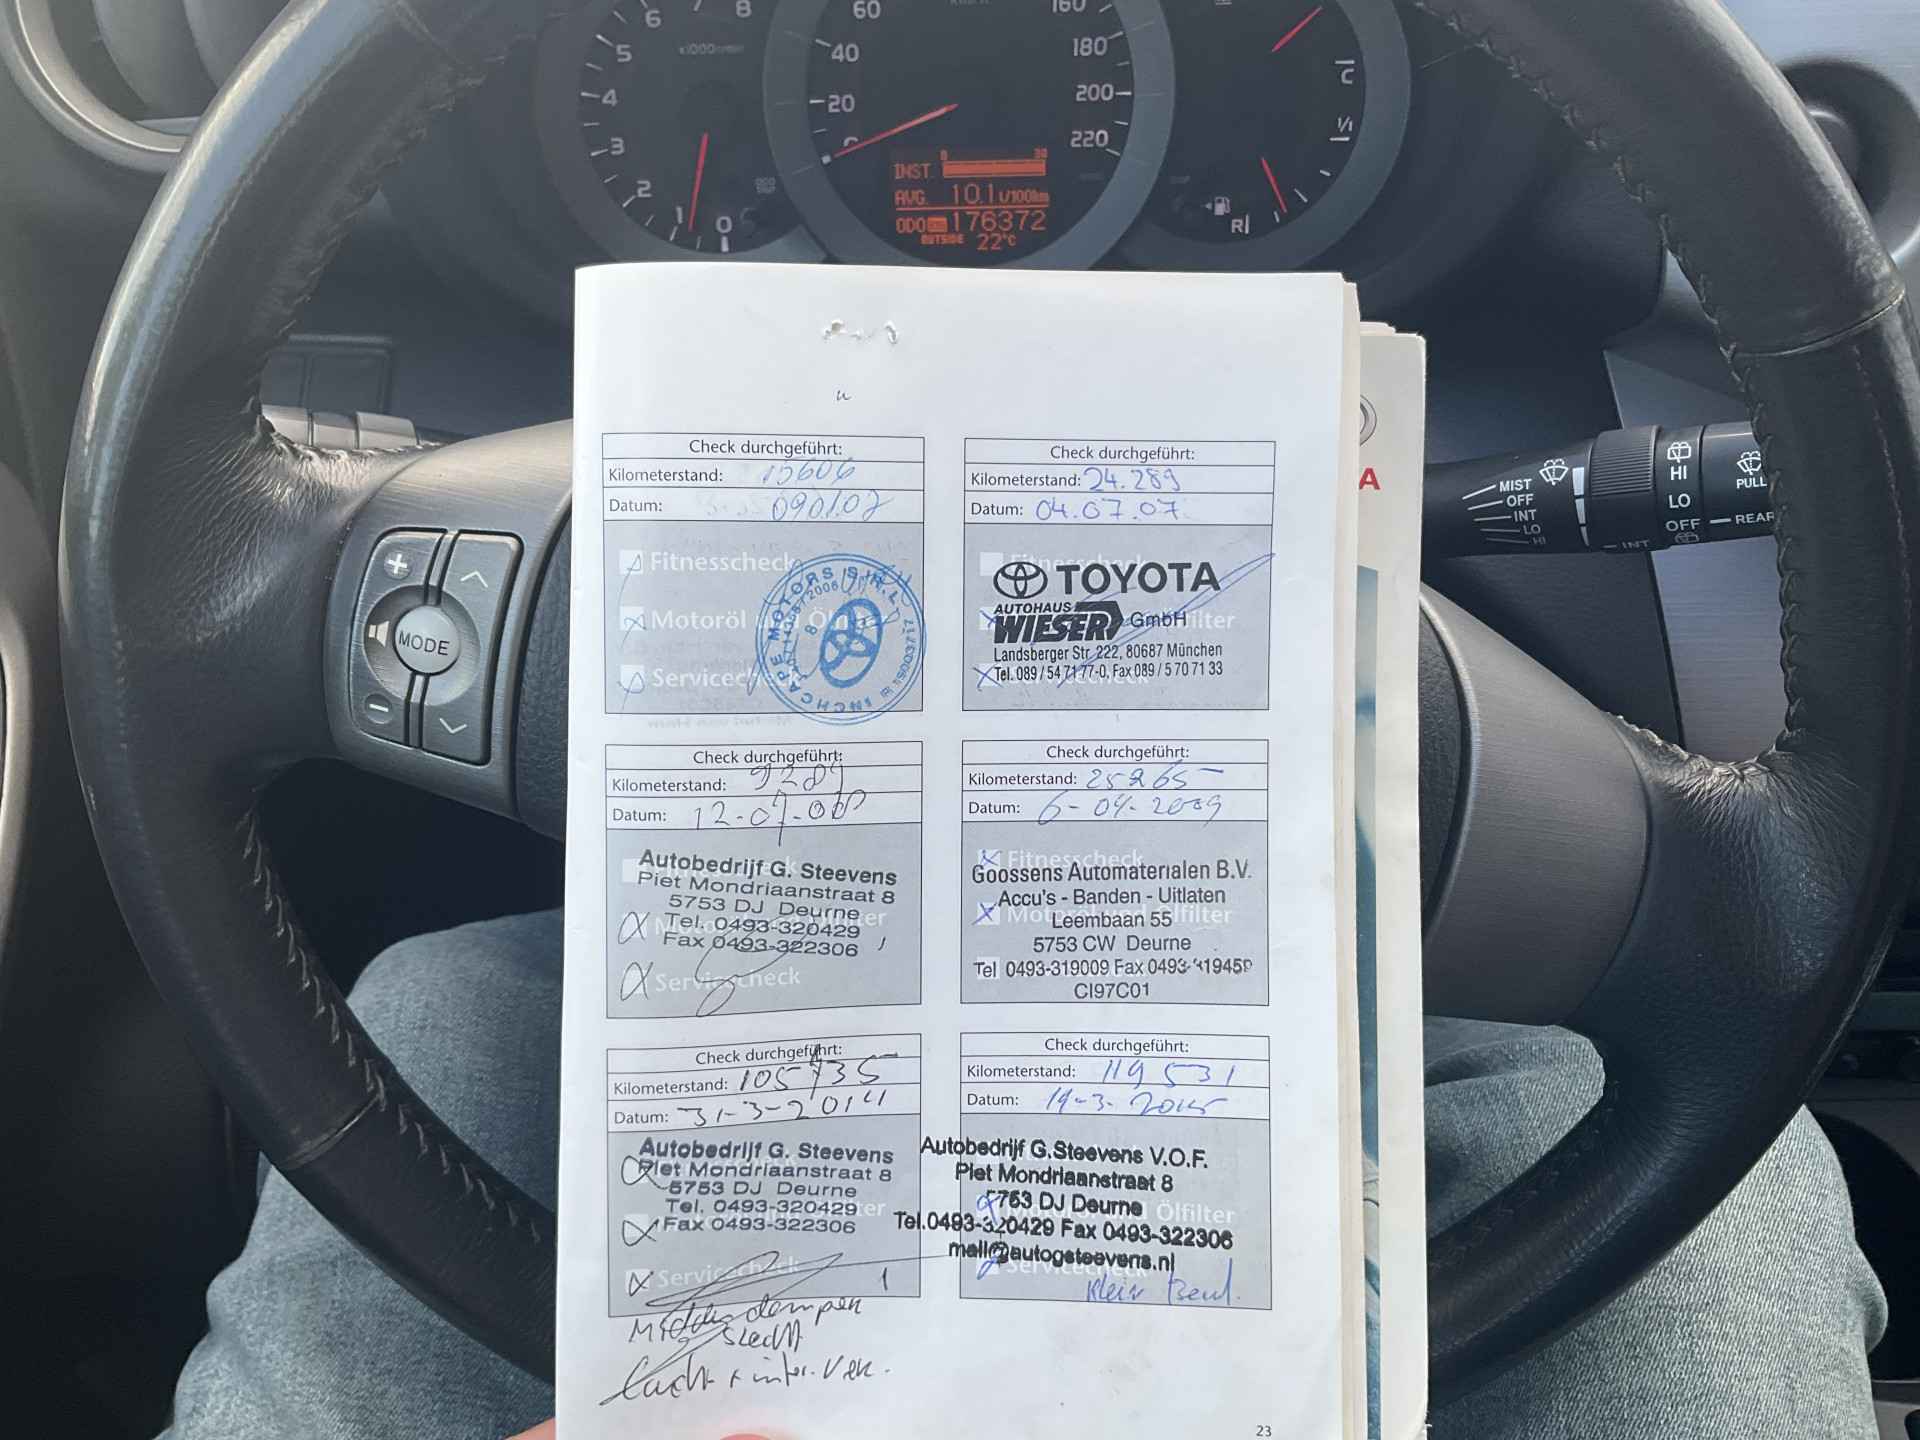 6 7 8
5
x1000r/min
4
3
2
1
0
60
40
20
0
160
180
200
220
0 30
INST.
AVG. 10.1 l/100km
ODO 176372
OUTSIDE 22°C
C
1/1
R
+
MODE
-
MIST
OFF
INT
LO
HI
HI
LO
OFF
INT
PULL
REAR
A
Check durchgeführt:
Kilometerstand: 15606
Datum: 090107
Fitnesscheck
Motoröl und Ölfilter
Servicecheck
INCHCAPE MOTORS S.R.L.
Check durchgeführt:
Kilometerstand: 24.289
Datum: 04.07.07.
Fitnesscheck
TOYOTA
AUTOHAUS
WIESER GmbH
Ölfilter
Landsberger Str. 222, 80687 München
Tel. 089/54 71 77-0, Fax 089/5 70 71 33
Servicecheck
Check durchgeführt:
Kilometerstand:
Datum: 12-07-
Autobedrijf G. Steevens
Piet Mondriaanstraat 8
5753 DJ Deurne
Tel. 0493-320429
Fax 0493-322306
Servicecheck
Check durchgeführt:
Kilometerstand: 25265
Datum: 6-04-2009
Fitnesscheck
Goossens Automaterialen B.V.
Accu's - Banden - Uitlaten
Motoröl und Ölfilter
Leembaan 55
5753 CW Deurne
Tel 0493-319009 Fax 0493-319459
CI97C01
Check durchgeführt:
Kilometerstand: 105735
Datum: 31-3-2014
Autobedrijf G. Steevens
Piet Mondriaanstraat 8
5753 DJ Deurne
Tel. 0493-320429
Fax 0493-322306
Servicecheck
Check durchgeführt:
Kilometerstand: 119531
Datum: 19-3-2015
Autobedrijf G.Steevens V.O.F.
Piet Mondriaanstraat 8
5753 DJ Deurne
Ölfilter
Tel.0493-320429 Fax 0493-322306
mail@autogsteevens.nl
Servicecheck
Klein Beurt.
23